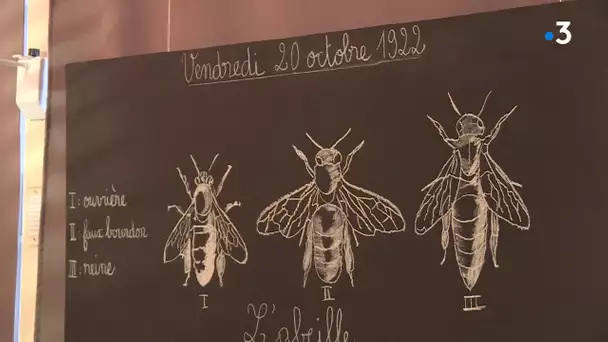 3
Vendredi 20 octobre 1922
I : ouvrière
II : faux bourdon
III : reine
I
II
III
L'abeille